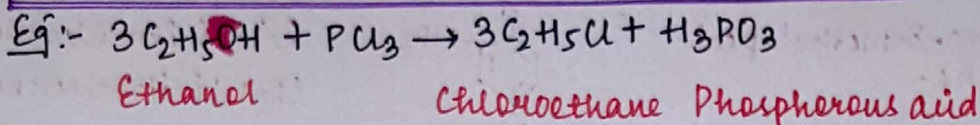 Eg:- 3 C₂H₅OH + PCl₃ → 3C₂H₅Cl + H₃PO₃
Ethanol Chloroethane Phosphorous acid